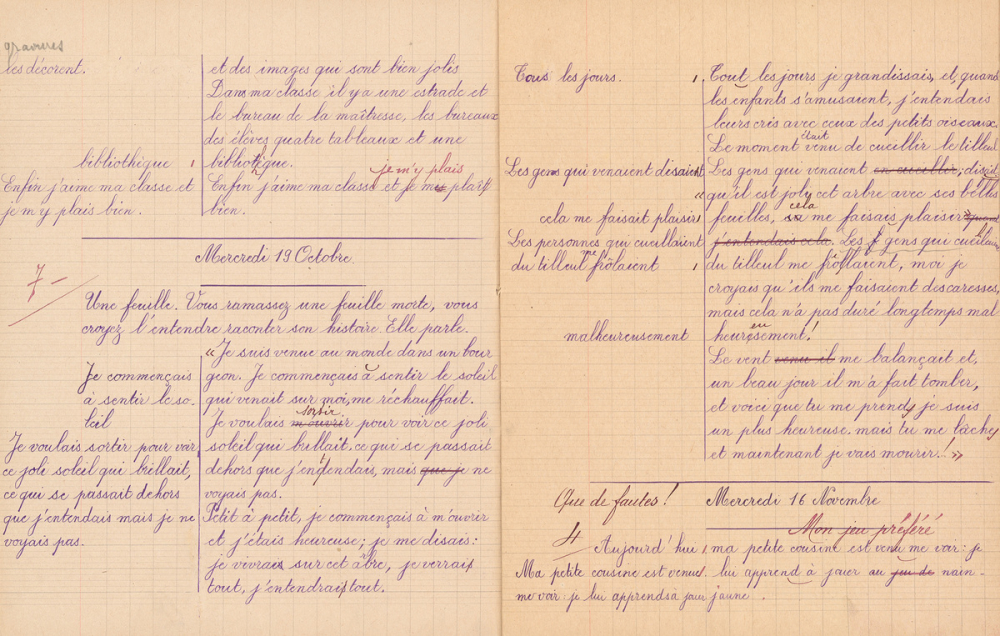 gravures
les décorent.
et des images qui sont bien jolis
Dans ma classe il y a une estrade et
le bureau de la maîtresse, les bureaux
des élèves quatre tableaux et une
bibliothèque
bibliothèque.
je m'y plais
Enfin j'aime ma classe et
je m'y plais bien.
Enfin j'aime ma classe et je plais
bien.
Mercredi 19 Octobre.
7
Une feuille. Vous ramassez une feuille morte, vous
croyez l'entendre raconter son histoire. Elle parle.
« Je suis venue au monde dans un bour
geon. Je commençais à sentir le soleil
qui venait sur moi, me réchauffait.
Je commençais
à sentir le so-
leil
sortir
Je voulais m'ouvrir pour voir ce joli
soleil qui brillait. ce qui se passait
dehors que j'entendais, mais que je ne
voyais pas.
Je voulais sortir pour voir
ce joli soleil qui brillait,
ce qui se passait dehors
que j'entendais mais je ne
voyais pas.
Petit à petit, je commençais à m'ouvrir
et j'étais heureuse; je me disais:
je vivrais sur cet abre, je verrais
tout, j'entendrais tout.
Tous les jours.
Tout les jours je grandissais, et, quand
les enfants s'amusaient, j'entendais
leurs cris avec ceux des petits oiseaux.
était
Le moment venu de cueillir le tilleul
Les gens qui venaient disaient
Les gens qui venaient en cueillir, disait
« qu'il est joly cet arbre avec ses belles
cela me faisait plaisir
cela
feuilles, sa me faisais plaisir quand
Les personnes qui cueillaient
j'entendais cela. Les gens qui cueillaient
me
du tilleul frôlaient
du tilleul me frôllaient, moi je
croyais qu'ils me faisaient des caresses,
mais cela n'a pas duré longtemps mal
malheureusement
eu
heuresement!
Le vent venu el me balançait et,
un beau jour il m'a fait tomber,
et voici que tu me prends je suis
un plus heureuse. mais tu me lâches
et maintenant je vais mourir! »
Que de fautes!
Mercredi 16 Novembre
4
Mon jeu préféré
Aujourd'hui, ma petite cousine est venu me voir: je
Ma petite cousine est venue. lui apprend à jouer au jeu de nain-
me voir je lui apprends à jouer jaune.